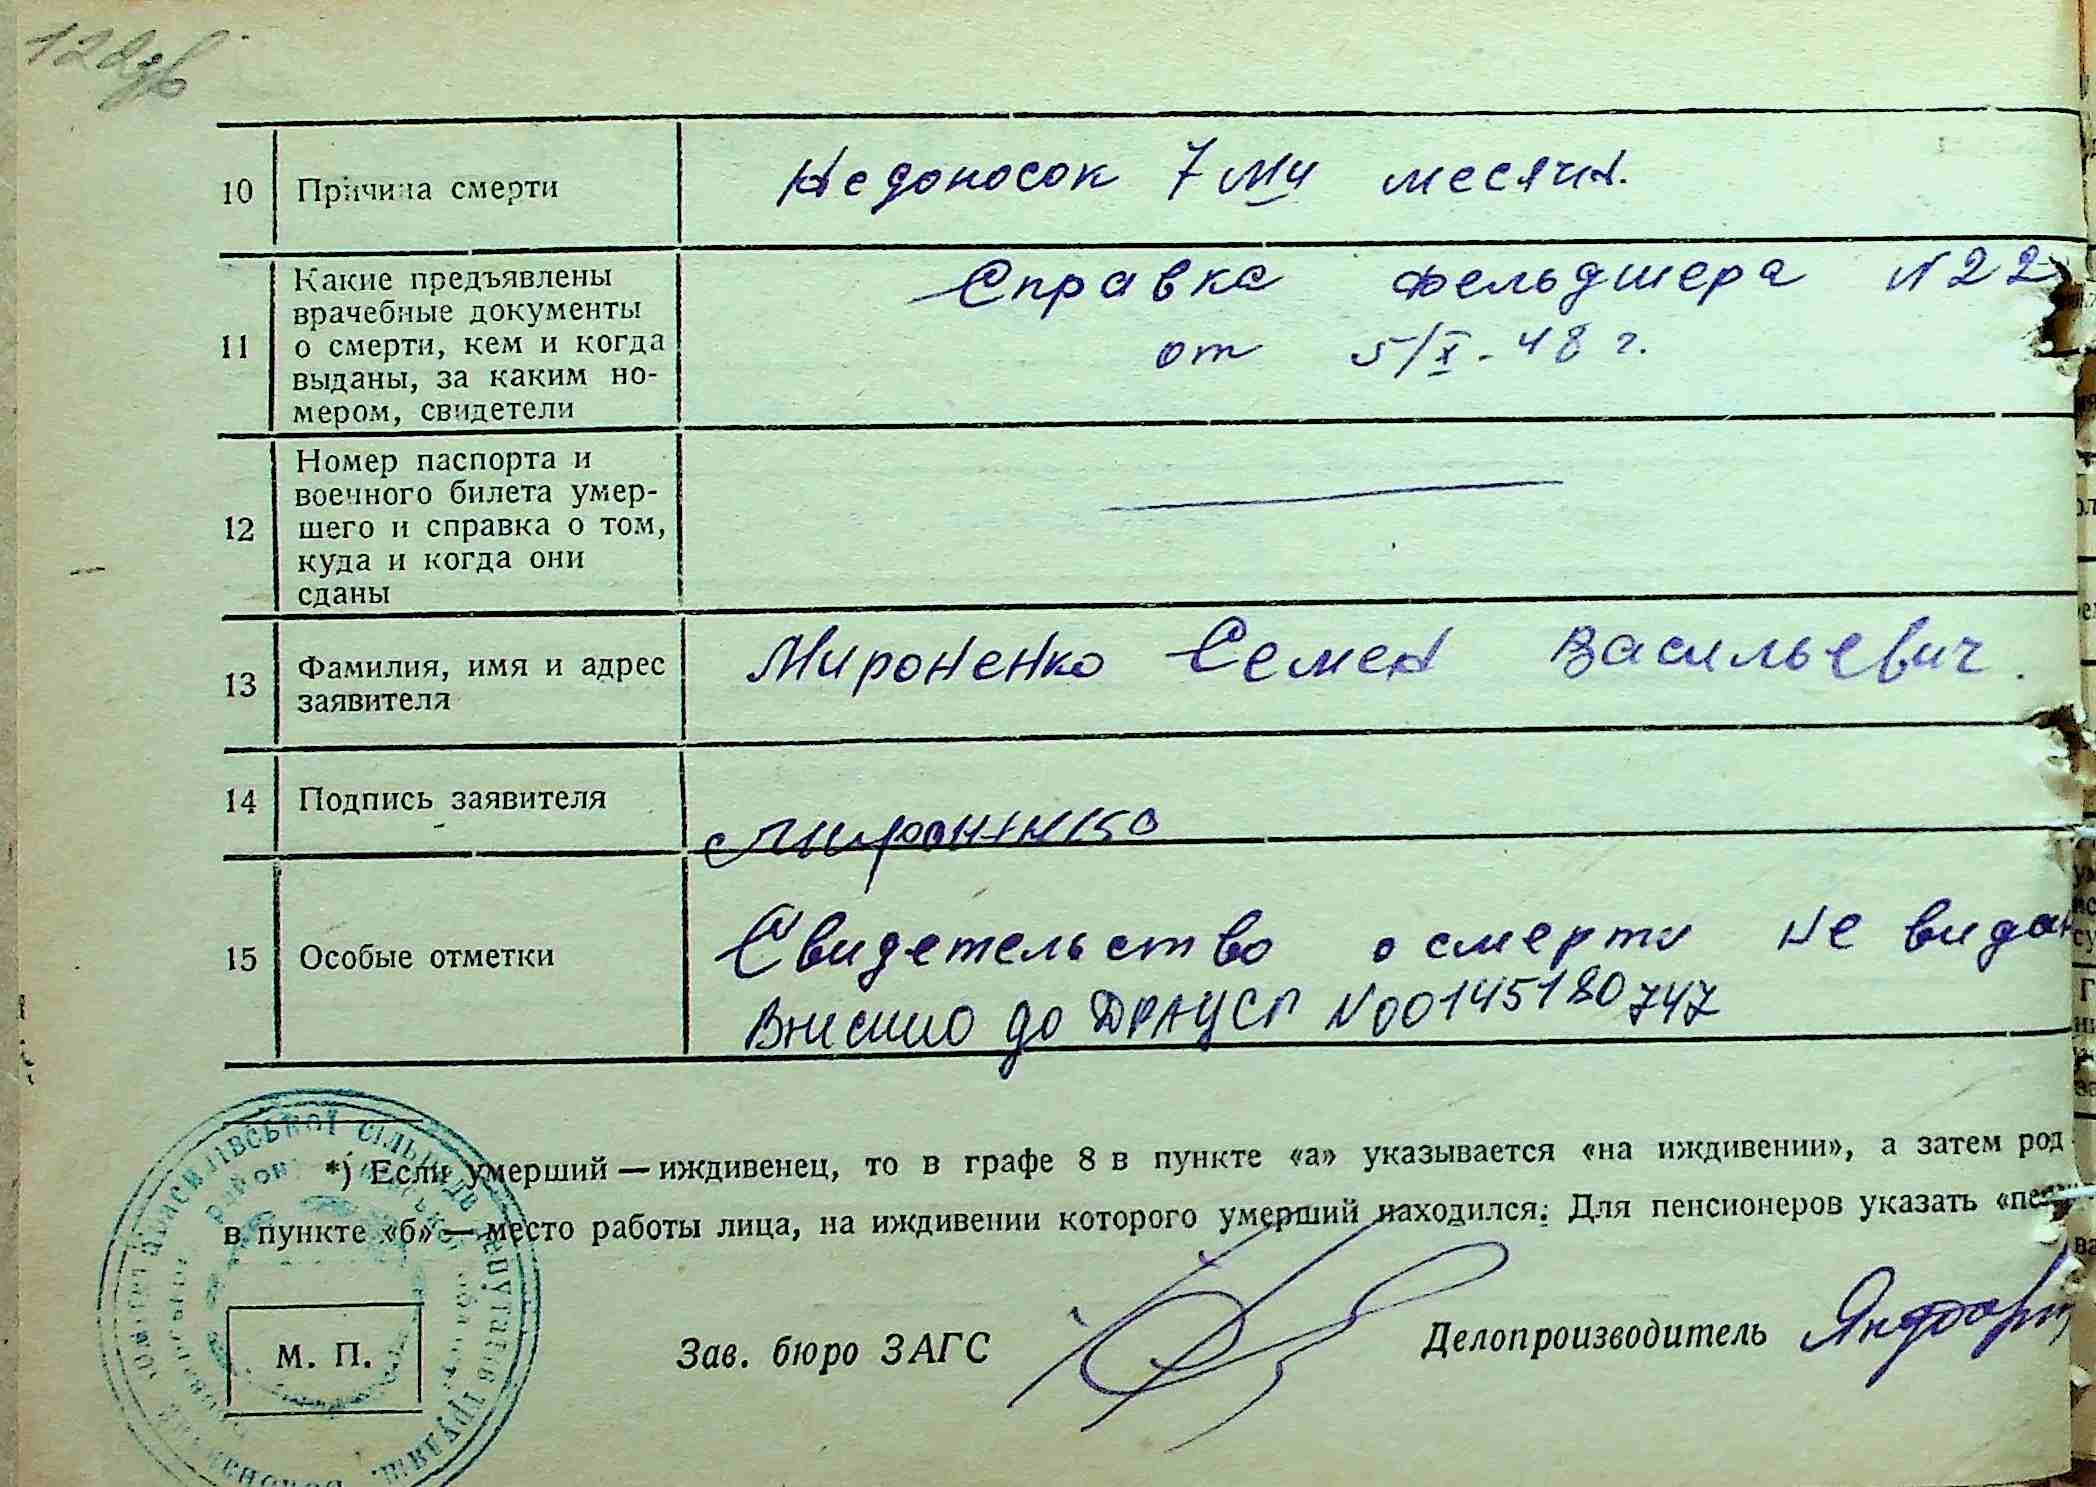 12
10 Причина смерти Недоносок 7ми месячн.
11 Какие предъявлены
врачебные документы
о смерти, кем и когда
выданы, за каким но-
мером, свидетели
Справка фельдшера N 22
от 5/X - 48 г.
12 Номер паспорта и
военного билета умер-
шего и справка о том,
куда и когда они
сданы
13 Фамилия, имя и адрес
заявителя
Мироненко Семен Васильевич.
14 Подпись заявителя
15 Особые отметки
Свидетельство о смерти не видан
Внесено до ДРАЦСГ N00145180747
*) Если умерший — иждивенец, то в графе 8 в пункте «а» указывается «на иждивении», а затем род
в пункте «б» — место работы лица, на иждивении которого умерший находился. Для пенсионеров указать
М. П.
Зав. бюро ЗАГС
Делопроизводитель